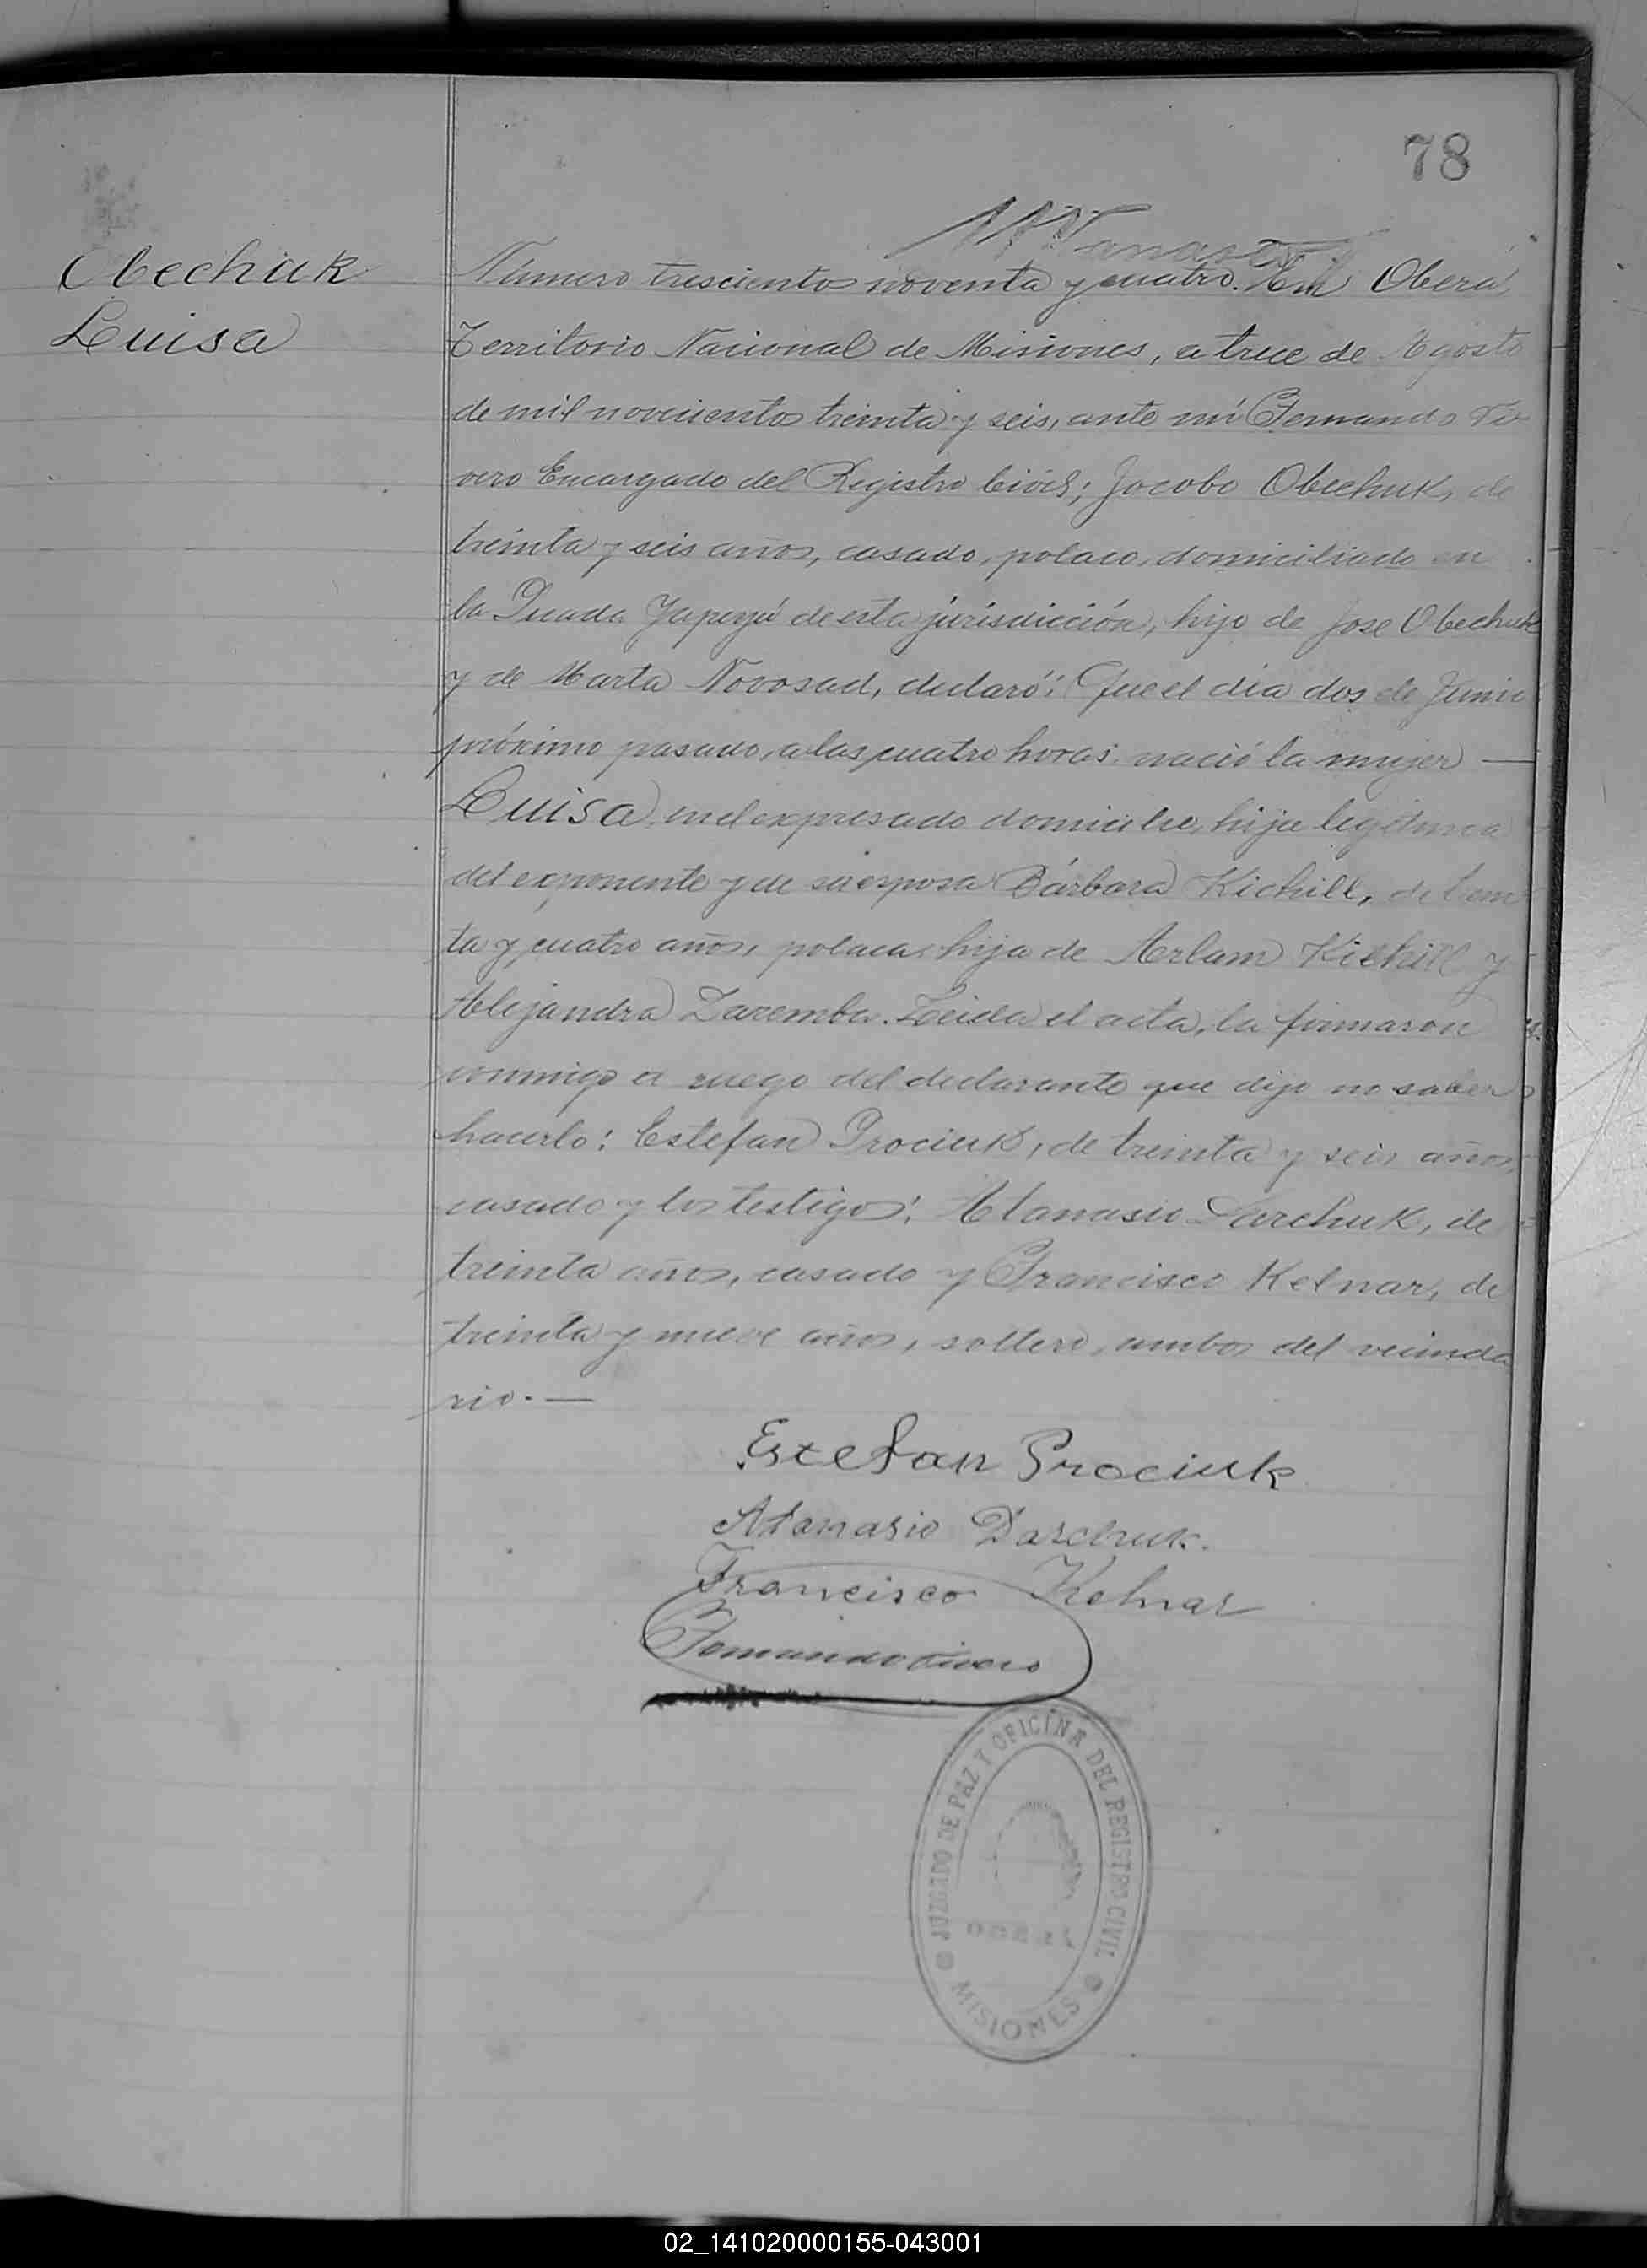 78
Obechuk
Luisa
Número trescientos noventa y cuatro. En Oberá,
Territorio Nacional de Misiones, a trece de Agosto
de mil novecientos treinta y seis, ante mí Fernando Ri-
vero Encargado del Registro Civil; Jocobo Obechuk, de
treinta y seis años, casado, polaco, domiciliado en
la Picada Yapeyú de esta jurisdicción, hijo de Jose Obechuk
y de Marta Novosad, declaró: Que el día dos de Junio
próximo pasado, a las cuatro horas nació la mujer —
Luisa, en el expresado domicilio, hija legítima
del exponente y de su esposa Bárbara Kichill, de trein
ta y cuatro años, polaca, hija de Kichill y
Alejandra Zaremba. Leida el acta, la firmaron
conmigo a ruego del declarante que dijo no saber
hacerlo: Estefan Prociuk, de treinta y seis años,
casado y los testigos: Atanasio Darchuk, de
treinta años, casado y Francisco Kelnar, de
treinta y nueve años, soltero, ambos del vecinda
rio. —
Estefan Prociuk
Atanasio Darchuk.
Francisco Kelnar
Fernando Rivero
JUZGADO DE PAZ Y OFICINA DEL REGISTRO CIVIL
OBERÁ
MISIONES
02_141020000155-043001